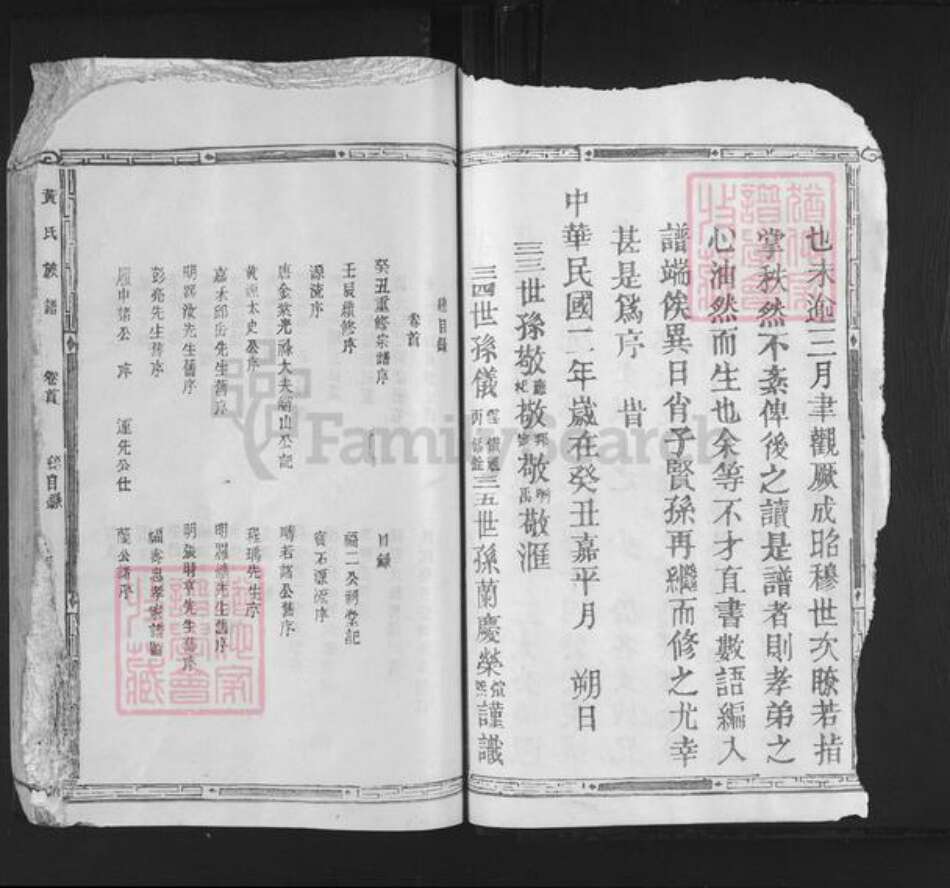 也未逾三月聿觀厥成昭穆世次瞭若指
掌秩然不紊俾後之讀是譜者則孝弟之
心油然而生也余等不才直書數語編入
譜端俟異日省子賢孫再繼而修之尤幸
甚是爲序 旹
中華民國二年歲在癸丑嘉平月 朔日
三三世孫敬敬敬敬滙
三四世孫儀三五世孫蘭慶榮謹識
總目錄
卷首
癸丑重修宗譜序 目錄
壬辰續修序 福二公祠堂記
源流序 賓石源流序
唐金紫光祿大夫峭山公記 疇若諸公舊序
黃太史公序 瑤先生序
嘉禾邱岳先生舊序 明先生舊序
明汝先生舊序 明張時亨先生舊序
彭亮先生舊序
履中諸公 序 運先公仕 公諸序
黃氏族譜 卷首 總目錄
FamilySearch